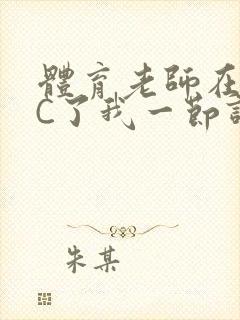 體育老師在
C了我一節
朱某